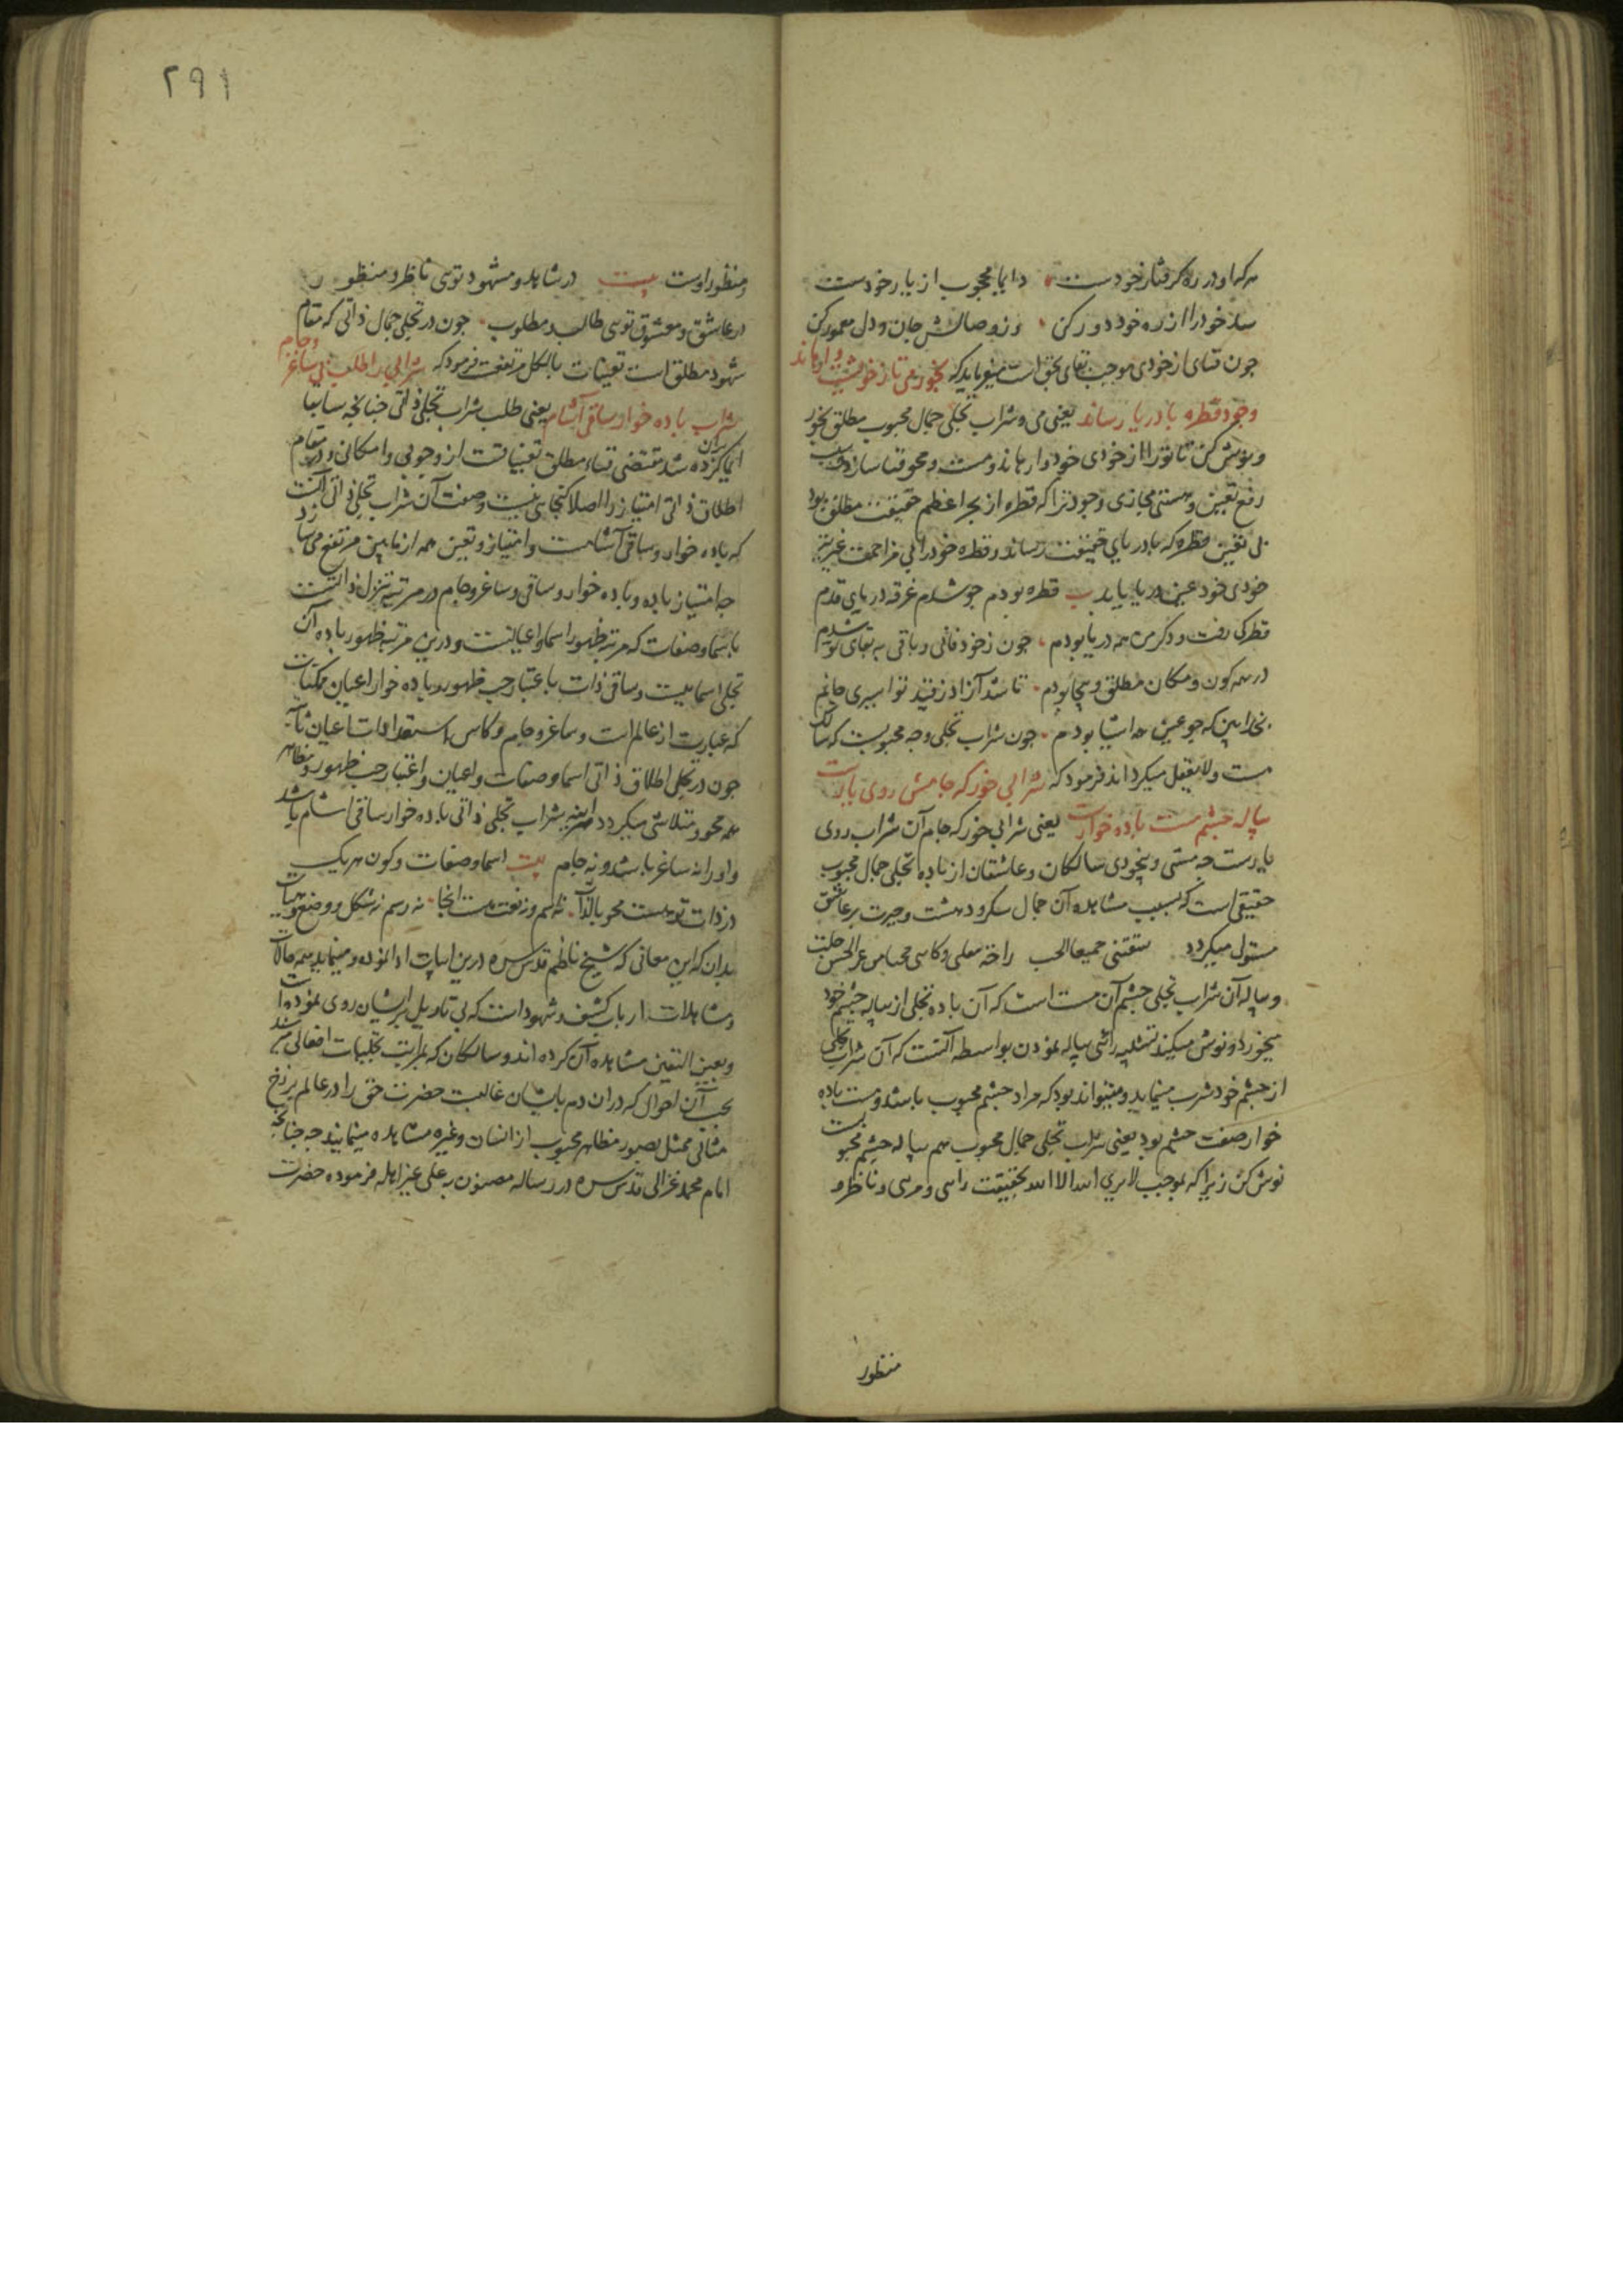 هرکه او در ره گرفتار خودست دایما محجوب از یار خودست
سد خود را از ره خود دور کن وز وصالش جان و دل معمور کن
چون فنای از خودی موجب بقای بحق است میفرماید که بخور می تا ز خویشت وارهاند
وجود قطره با دریا رساند یعنی می و شراب تجلی جمال محبوب مطلق بخور
و نوش کن تا ترا از خودی خود وارهاند و مست و محو فنا سازد و بسبب
رفع تعین و هستی مجازی وجود ترا که قطره از بحر اعظم حقیقت مطلق بود
بی تعین قطره که با دریای حقیقت رساند و قطره خود را بی مزاحمت غیریت
خودی خود عین دریا یابد قطره بودم چو شدم غرقه دریای قدم
قطرکی رفت و دگر من همه دریا بودم چون ز خود فانی و باقی به بقای تو شدم
در همه کون و مکان مطلق و یکجا بودم تا شد آزاد ز قید تو اسیری جانم
بخدا بین که چو عین همه اشیا بودم چون شراب تجلی وجه محبوبست که سالک
مست و لایعقل میگرداند فرمود که شرابی خور که جامش روی یارست
پیاله چشم مست باده خوارست یعنی شرابی خور که جام آن شراب روی
یارست چه مستی و بیخودی سالکان و عاشقان از باده تجلی جمال محبوب
حقیقی است که بسبب مشاهده آن جمال سکر و دهشت و حیرت بر عاشق
مستولی میگردد سقتنی حمیا الحب راحة مقلتی وکاسی محیا من عن الحسن جلت
و پیاله آن شراب تجلی چشم آن مست است که آن باده تجلی از پیاله چشم خود
میخورد و نوش میکند تشبیه رائی بپیاله نمودن بواسطه آنست که آن شراب تجلی
از چشم خود شرب مینماید و میتواند بود که مراد چشم محبوب باشد و مست باده
خوار صفت چشم بود یعنی شراب تجلی جمال محبوب هم بپیاله چشم محبوبست
نوش کن زیرا که بموجب لا یری الله الا الله بحقیقت رائی و مرئی و ناظر و
منظور
۲۹۱
و منظور اوست بیت در شاهد و مشهود توی ناظر و منظور
در عاشق و معشوق توی طالب و مطلوب چون در تجلی جمال ذاتی که مقام
شهود مطلق است تعینات بالکل مرتفعت فرمود که شرابی را طلب بی ساغر و جام
شراب باده خوار ساقی آشام یعنی طلب شراب تجلی ذاتی چنانچه سابقا
ایما بران کرده شد مقتضی فناء مطلق تعیناتست از وجوبی و امکانی و در مقام
اطلاق ذاتی امتیاز را اصلا گنجایی نیست و صفت آن شراب تجلی ذاتی آنست
که باده خوار و ساقی آشامست و امتیاز و تعین همه از مابین مرتفع می سازد
چه امتیاز باده و باده خوار و ساقی و ساغر و جام در مرتبه تنزل ذاتست
باسما و صفات که مرتبه ظهور اسما و اعیانست و درین مرتبه ظهور باده آن
تجلی اسماییست و ساقی ذات باعتبار حب ظهور و باده خوار اعیان ممکنات
که عبارت از عالم است و ساغر و جام و کاس استعدادات اعیان ثابته
چون در تجلی اطلاق ذاتی اسما و صفات و اعیان و اعتبار حب ظهور و مظاهر
همه محو و متلاشی میگردد هرآینه شراب تجلی ذاتی باده خوار ساقی آشام باشد
و او را نه ساغر باشد و نه جام بیت اسما و صفات و کون هریک
در ذات تو هست محو بالذات نه اسم و نه نعت هست انجا نه رسم نه شکل و وضع و هیات
بدان که این معانی که شیخ ناظم قدس سره درین ابیات ادا نموده و مینماید همه حالات
و مشاهدات ارباب کشف و شهود است که بی تاویل بر ایشان روی نموده است
و بعین الیقین مشاهده آن کرده اند و سالکان که بمراتب تجلیات افعالی رسند
بحسب آن احوال که دران دم بایشان غالبست حضرت حق را در عالم برزخ
مثالی ممثل بصور مظاهر محبوب از انسان و غیره مشاهده مینمایند چه چنانچه
امام محمد غزالی قدس سره در رساله مضنون به علی غیر اهله فرموده حضرت